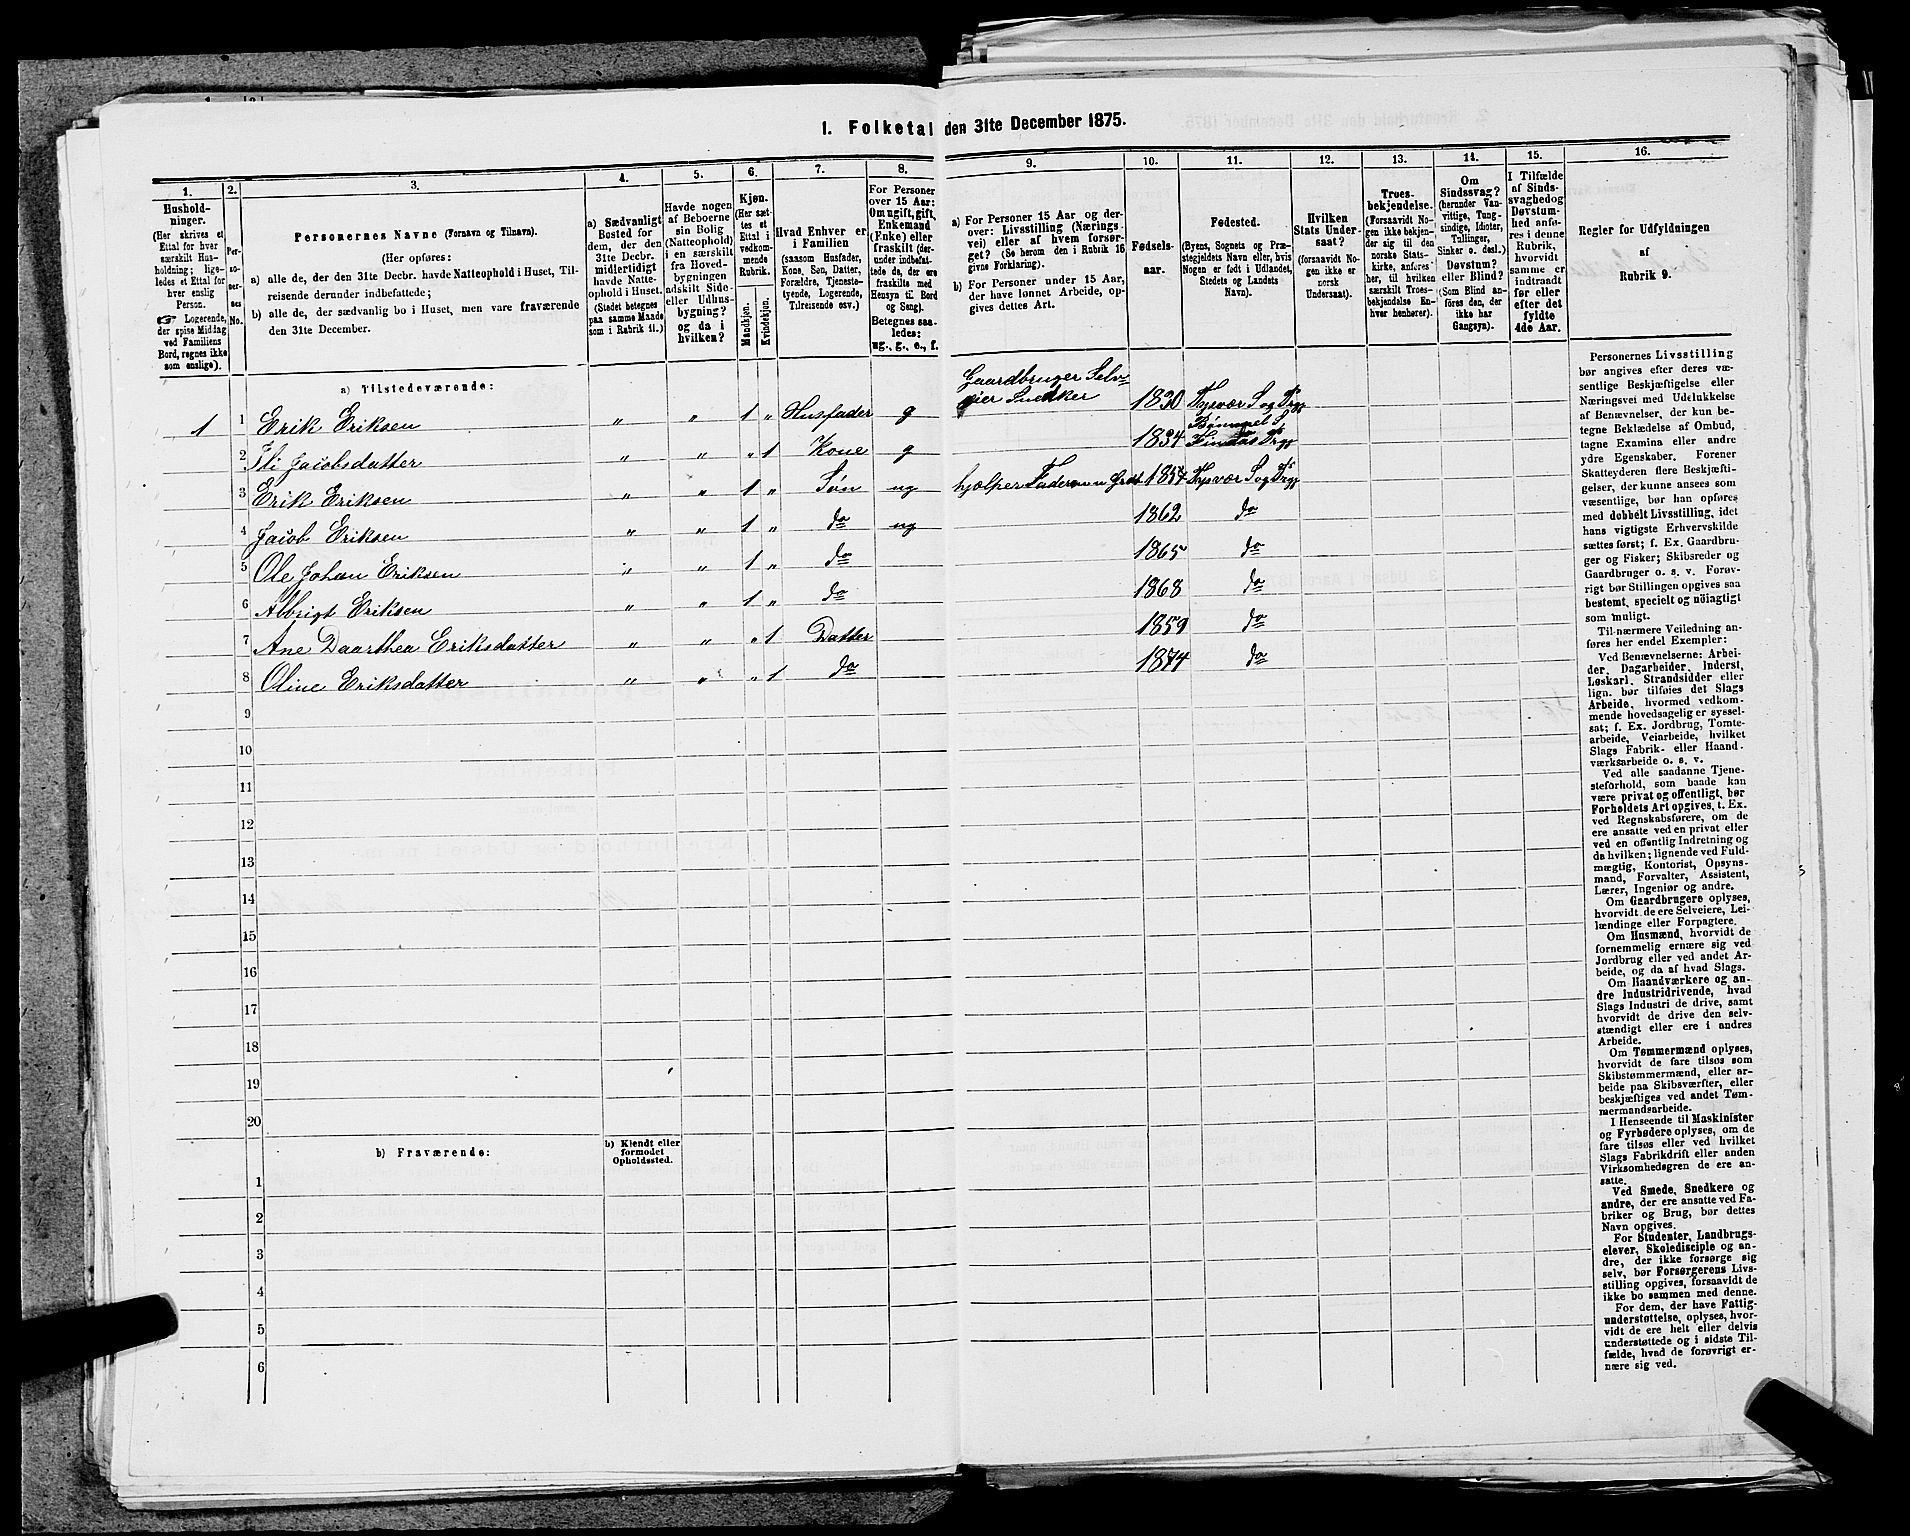 1. Folketal den 31te December 1875.
1. 2. 3. 4. 5. 6. 7. 8. 9. 10. 11. 12. 13. 14. 15. 16.
Hushold-
ninger.
(Her skrives et
Ettal for hver
særskilt Hus-
holdning; lige-
ledes et Ettal for
hver enslig
Person.
☞ Logerende,
der spise Middag
ved Familiens
Bord, regnes ikke
som enslige).
Per-
so-
ner-
nes
No.
Personernes Navne (Fornavn og Tilnavn).
(Her opføres:
a) alle de, der den 31te Decbr. havde Natteophold i Huset, Til-
reisende derunder indbefattede;
b) alle de, der sædvanlig bo i Huset, men vare fraværende
den 31te December.
a) Sædvanligt
Bosted for
dem, der den
31te Decbr.
midlertidigt
havde Natte-
ophold i Huset.
(Stedet betegnes
paa samme Maade
som i Rubrik 11.)
Havde nogen
af Beboerne
sin Bolig
(Natteophold)
i en særskilt
fra Hoved-
bygningen
adskilt Side-
eller Udhus-
bygning?
og da i
hvilken?
Kjøn.
(Her sæt-
tes et
Ettal i
vedkom-
mende
Rubrik.)
Mandkjøn.
Kvindekjøn.
Hvad Enhver er
i Familien
(saasom Husfader,
Kone, Søn, Datter,
Forældre, Tjeneste-
tyende, Logerende,
Tilreisende osv.)
For Personer
over 15 Aar:
Om ugift, gift,
Enkemand
(Enke) eller
fraskilt (der-
under indbefat-
tede de, der ere
fraskilte med
Hensyn til Bord
og Seng).
Betegnes saa-
ledes:
ug., g., e., f.
a) For Personer 15 Aar og der-
over: Livsstilling (Nærings-
vei) eller af hvem forsør-
get? (Se herom den i Rubrik 16
givne Forklaring).
b) For Personer under 15 Aar,
der have lønnet Arbeide, op-
gives dettes Art.
Fødsels-
aar.
Fødested.
(Byens, Sognets og Præ-
stegjeldets Navn eller, hvis
Nogen er født i Udlandet,
Stedets og Landets
Navn).
Hvilken
Stats Under-
saat?
(forsaavidt No-
gen ikke er
norsk
Undersaat).
Troes-
bekjendelse.
(Forsaavidt No-
gen ikke bekjen-
der sig til den
norske Stats-
kirke, anføres
her, til hvilken
særskilt Troes-
bekjendelse En-
hver henhører).
Om
Sindssvag?
(herunder Van-
vittige, Tung-
sindige, Idioter,
Tullinger,
Sinker o. desl.)
Døvstum?
eller Blind?
(Som Blind an-
føres den, der
ikke har
Gangsyn).
I Tilfælde
af Sinds-
svaghed og
Døvstum-
hed anfø-
res i denne
Rubrik,
hvorvidt
samme er
indtraadt
før eller
efter det
fyldte
4de Aar.
Regler for Udfyldningen
af
Rubrik 9.
a) Tilstedeværende:
1 1 Erik Eriksen „ „ 1 „ Husfader g Gaardbruger Selv-
eier Snedker 1830 Tysvær S og Prgj
2 Jacobsdatter „ „ „ 1 Kone g 1834 Bømmel S Findås Prgj
3 Erik Eriksen „ „ 1 „ Søn ug hjælper Faderen 1857 Tysvær S og Prgj
4 Jacob Eriksen „ „ 1 „ do ug 1862 do
5 Ole Johan Eriksen „ „ 1 „ do 1865 do
6 Albrigt Eriksen „ „ 1 „ do 1868 do
7 Ane Daarthea Eriksdatter „ „ „ 1 Datter 1859 do
8 Oline Eriksdatter „ „ „ 1 do 1874 do
9
10
11
12
13
14
15
16
17
18
19
20
b) Fraværende:
b) Kjendt eller
formodet
Opholdssted.
1
2
3
4
5
6
Personernes Livsstilling
bør angives efter deres væ-
sentlige Beskjæftigelse eller
Næringsvei med Udelukkelse
af Benævnelser, der kun be-
tegne Beklædelse af Ombud,
tagne Examina eller andre
ydre Egenskaber. Forener
Skatteyderen flere Beskjæfti-
gelser, der kunne ansees som
væsentlige, bør han opføres
med dobbelt Livsstilling, idet
hans vigtigste Erhvervskilde
sættes først; f. Ex. Gaardbru-
ger og Fisker; Skibsreder og
Gaardbruger o. s. v. Forøv-
rigt bør Stillingen opgives saa
bestemt, specielt og nøiagtigt
som muligt.
Til nærmere Veiledning an-
føres her endel Exempler:
Ved Benævnelserne: Arbei-
der, Dagarbeider, Inderst,
Løskarl, Strandsidder eller
lign. bør tilføies det Slags
Arbeide, hvormed vedkom-
mende hovedsagelig er syssel-
sat; f. Ex. Jordbrug, Tomte-
arbeide, Veiarbeide, hvilket
Slags Fabrik- eller Haand-
værksarbeide o. s. v.
Ved alle saadanne Tjene-
steforhold, som baade kan
være privat og offentligt, bør
Forholdets Art opgives, t. Ex.
ved Regnskabsførere, om de
ere ansatte ved en privat eller
ved en offentlig Indretning og
da hvilken; lignende ved Fuld-
mægtig, Kontorist, Opsyns-
mand, Forvalter, Assistent,
Lærer, Ingeniør og andre.
Om Gaardbrugere oplyses,
hvorvidt de ere Selveiere, Lei-
lændinge eller Forpagtere.
Om Husmænd, hvorvidt de
fornemmelig ernære sig ved
Jordbrug eller ved andet Ar-
beide, og da af hvad Slags.
Om Haandværkere og an-
dre Industridrivende, hvad
Slags Industri de drive, samt
hvorvidt de drive den selv-
stændigt eller ere i andres
Arbeide.
Om Tømmermænd oplyses,
hvorvidt de fare tilsøs som
Skibstømmermænd, eller ar-
beide paa Skibsværfter, eller
beskjæftiges ved andet Tøm-
mermandsarbeide.
I Henseende til Maskinister
og Fyrbødere oplyses, om de
fare tilsøs eller ved hvilket
Slags Fabrikdrift eller anden
Virksomhedsgren de ere an-
satte.
Ved Smede, Snedkere og
andre, der ere ansatte ved Fa-
briker og Brug, bør dettes
Navn opgives.
For Studenter, Landbrugs-
elever, Skoledisciple og an-
dre, der ikke forsørge sig
selv, bør Forsørgerens Livs-
stilling opgives, forsaavidt de
ikke bo sammen med denne.
For dem, der have Fattig-
understøttelse, oplyses, hvor-
vidt de ere helt eller delvis
understøttede og i sidste Til-
fælde, hvad de forøvrigt er-
nære sig ved.